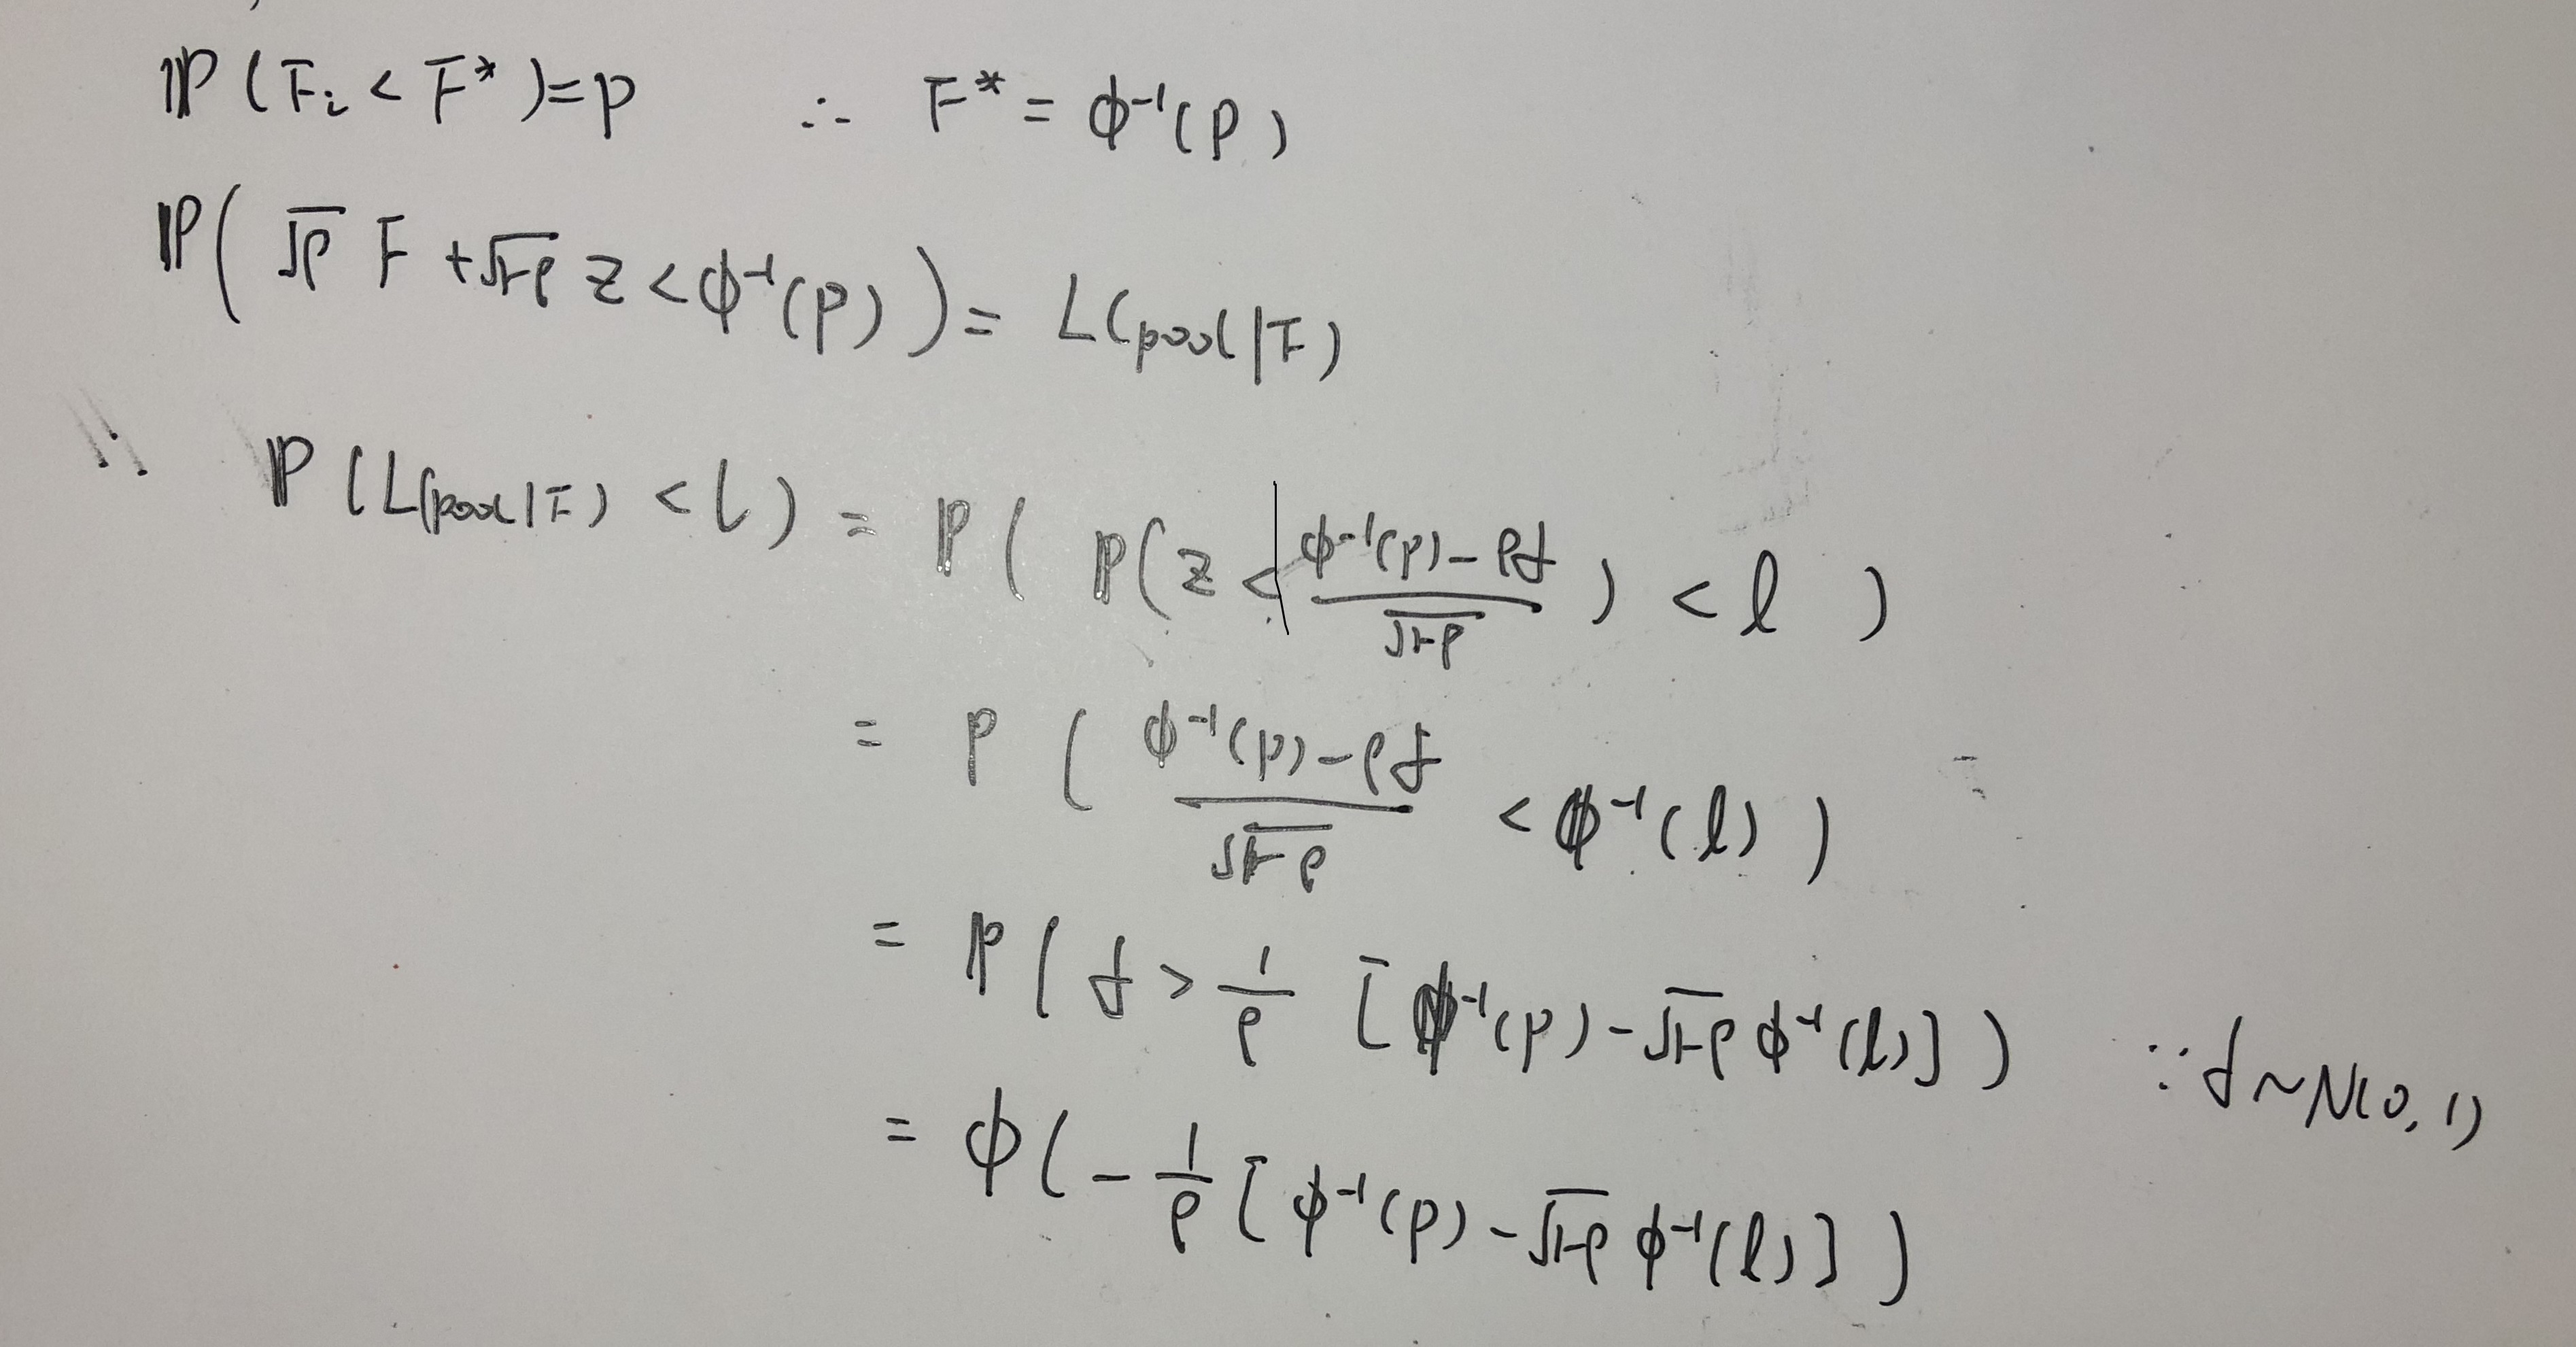 ℙ(Fᵢ < F*) = p ∴ F* = ϕ⁻¹(p)
ℙ(√ρ F + √(1-ρ) Z < ϕ⁻¹(p)) = L(pool|F)
∴ ℙ(L(pool|F) < l) = ℙ(ℙ(Z < (ϕ⁻¹(p) - ρf)/√(1-ρ)) < l)
= ℙ((ϕ⁻¹(p) - ρf)/√(1-ρ) < ϕ⁻¹(l))
= ℙ(f > 1/ρ [ϕ⁻¹(p) - √(1-ρ) ϕ⁻¹(l)]) ∵ f ~ N(0, 1)
= ϕ(- 1/ρ [ϕ⁻¹(p) - √(1-ρ) ϕ⁻¹(l)])